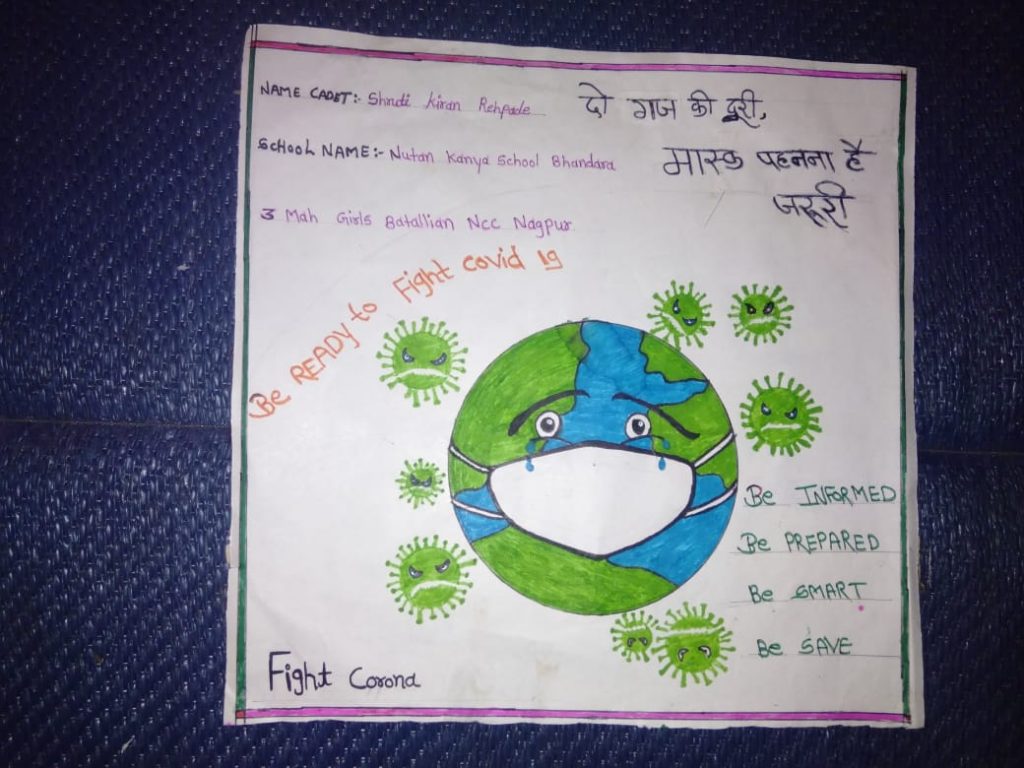 NAME CADET:- Shrudi Kiran Rehpade
दो गज की दूरी,
SCHOOL NAME:- Nutan Kanya School Bhandara
मास्क पहनना है
जरूरी
3 Mah Girls Batallian Ncc Nagpur
Be READY to Fight covid 19
Be INFORMED
Be PREPARED
Be SMART
Be SAVE
Fight Corona